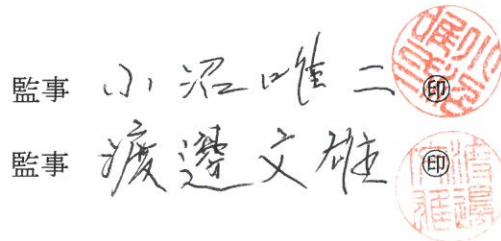 監事 小沼唯二 ㊞
監事 渡邊文雄 ㊞